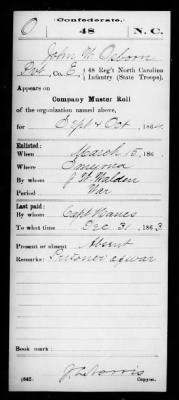 Confederate.
O 48 N.C.
John W. Osborn
Pvt, Co. E, 48 Reg't North Carolina
Infantry (State Troops).
Appears on
Company Muster Roll
of the organization named above,
for Sept & Oct, 1864.
Enlisted:
When March 15, 186
Where
By whom J. W. Walden
Period War
Last paid:
By whom Capt Hanes
To what time Dec 31, 1863
Present or absent Absent
Remarks: Prisoner of war
Book mark:
(642) J. C. Norris
Copyist.